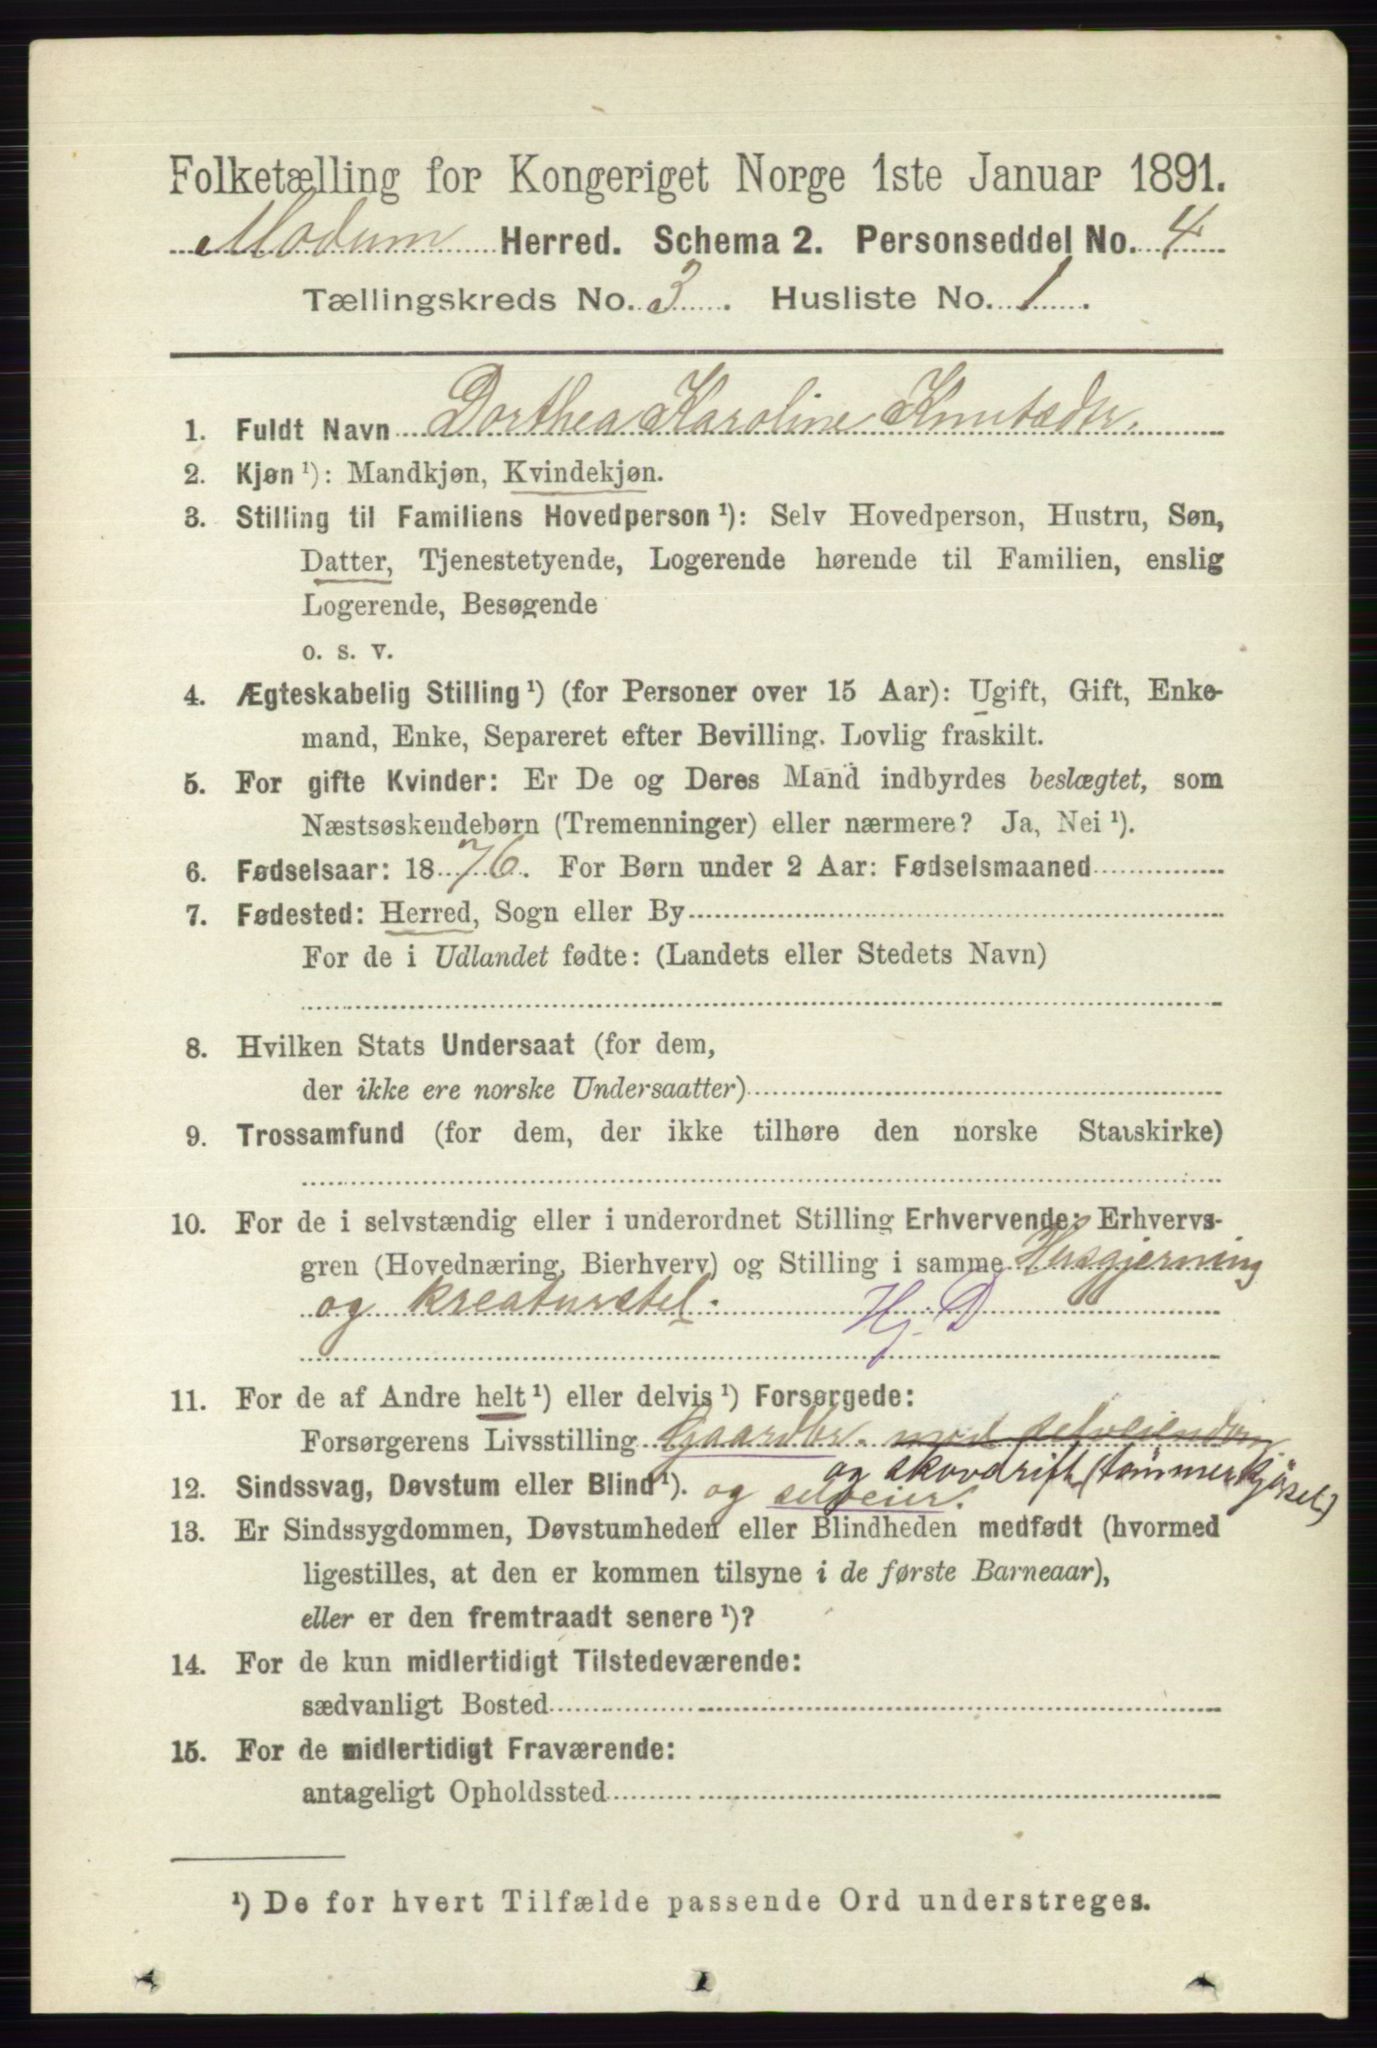 Folketælling for Kongeriget Norge 1ste Januar 1891.
Modum Herred. Schema 2. Personseddel No. 4
Tællingskreds No. 3. Husliste No. 1.
1. Fuldt Navn Dorthea Karoline Knutsdtr.
2. Kjøn ¹): Mandkjøn, Kvindekjøn.
3. Stilling til Familiens Hovedperson ¹): Selv Hovedperson, Hustru, Søn,
Datter, Tjenestetyende, Logerende hørende til Familien, enslig
Logerende, Besøgende
o. s. v.
4. Ægteskabelig Stilling ¹) (for Personer over 15 Aar): Ugift, Gift, Enke-
mand, Enke, Separeret efter Bevilling. Lovlig fraskilt.
5. For gifte Kvinder: Er De og Deres Mand indbyrdes beslægtet, som
Næstsøskendebørn (Tremenninger) eller nærmere? Ja, Nei ¹).
6. Fødselsaar: 1876. For Børn under 2 Aar: Fødselsmaaned
7. Fødested: Herred, Sogn eller By
For de i Udlandet fødte: (Landets eller Stedets Navn)
8. Hvilken Stats Undersaat (for dem,
der ikke ere norske Undersaatter)
9. Trossamfund (for dem, der ikke tilhøre den norske Statskirke)
10. For de i selvstændig eller i underordnet Stilling Erhvervende: Erhvervs-
gren (Hovednæring, Bierhverv) og Stilling i samme Husgjerning
og kreaturstel. Hj. D
11. For de af Andre helt ¹) eller delvis ¹) Forsørgede:
Forsørgerens Livsstilling Gaardbr. med selveiendom
og skovdrift (tømmerkjørsel)
12. Sindssvag, Døvstum eller Blind ¹). og selveier.
13. Er Sindssygdommen, Døvstumheden eller Blindheden medfødt (hvormed
ligestilles, at den er kommen tilsyne i de første Barneaar),
eller er den fremtraadt senere ¹)?
14. For de kun midlertidigt Tilstedeværende:
sædvanligt Bosted
15. For de midlertidigt Fraværende:
antageligt Opholdssted
¹) De for hvert Tilfælde passende Ord understreges.